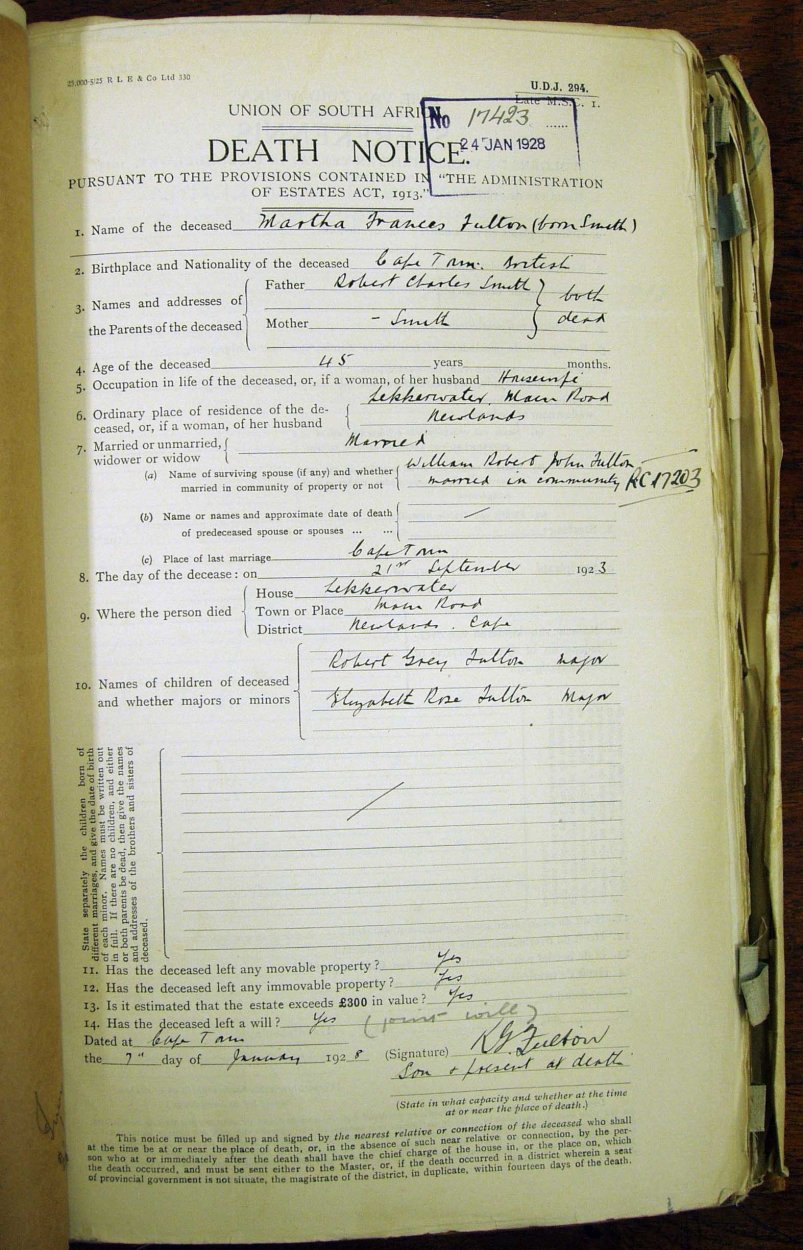 25,000-5/25 R L E & Co Ltd 330
U.D.J. 294.
Late M.S.C. 1.
UNION OF SOUTH AFRI
No 17423 ......
24 JAN 1928
DEATH NOTICE.
PURSUANT TO THE PROVISIONS CONTAINED IN "THE ADMINISTRATION
OF ESTATES ACT, 1913."
1. Name of the deceased Martha Frances Fulton (born Smith)
2. Birthplace and Nationality of the deceased Cape Town. British
3. Names and addresses of the Parents of the deceased
Father Robert Charles Smith
Mother - Smith
both
dead
4. Age of the deceased 45 years months.
5. Occupation in life of the deceased, or, if a woman, of her husband Housewife
6. Ordinary place of residence of the de-
ceased, or, if a woman, of her husband
Lekkerwater, Main Road
Newlands
7. Married or unmarried,
widower or widow
Married
(a) Name of surviving spouse (if any) and whether
married in community of property or not
William Robert John Fulton
married in community RC 17203
(b) Name or names and approximate date of death
of predeceased spouse or spouses ... ...
(c) Place of last marriage Cape Town
8. The day of the decease: on 21st September 1923
9. Where the person died
House Lekkerwater
Town or Place Main Road
District Newlands. Cape
10. Names of children of deceased
and whether majors or minors
Robert Grey Fulton major
Elizabeth Rose Fulton Major
State separately the children born of
different marriages, and give the date of birth
of each minor. Names must be written out
in full. If there are no children, and either
or both parents be dead, then give the names
and addresses of the brothers and sisters of
deceased.
11. Has the deceased left any movable property? Yes
12. Has the deceased left any immovable property? Yes
13. Is it estimated that the estate exceeds £300 in value? Yes
14. Has the deceased left a will? Yes (joint will)
Dated at Cape Town
the 7th day of January 1928
(Signature) R G Fulton
Son & present at death
(State in what capacity and whether at the time
at or near the place of death.)
This notice must be filled up and signed by the nearest relative or connection of the deceased who shall
at the time be at or near the place of death, or, in the absence of such near relative or connection, by the per-
son who at or immediately after the death shall have the chief charge of the house in, or the place on, which
the death occurred, and must be sent either to the Master, or, if the death occurred in a district wherein a seat
of provincial government is not situate, the magistrate of the district, in duplicate, within fourteen days of the death.